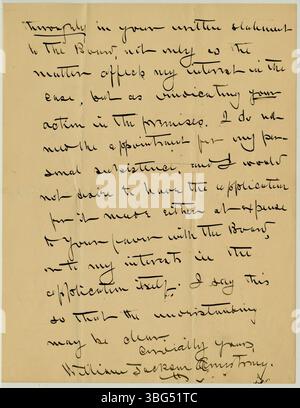 thoroughly in your written statement
to the Board, not only as the
matter affects my interest in the
case, but as vindicating your
action in the premises. I do not
need the appointment for my per-
sonal subsistence, and I would
not desire to have the application
for it made either at expense
to your favor with the Board,
or to my interests in the
application itself. I say this
so that the understanding
may be clear.
Cordially yours,
William Jackson Armstrong.
alamy
Image ID: 3BG51TC
www.alamy.com